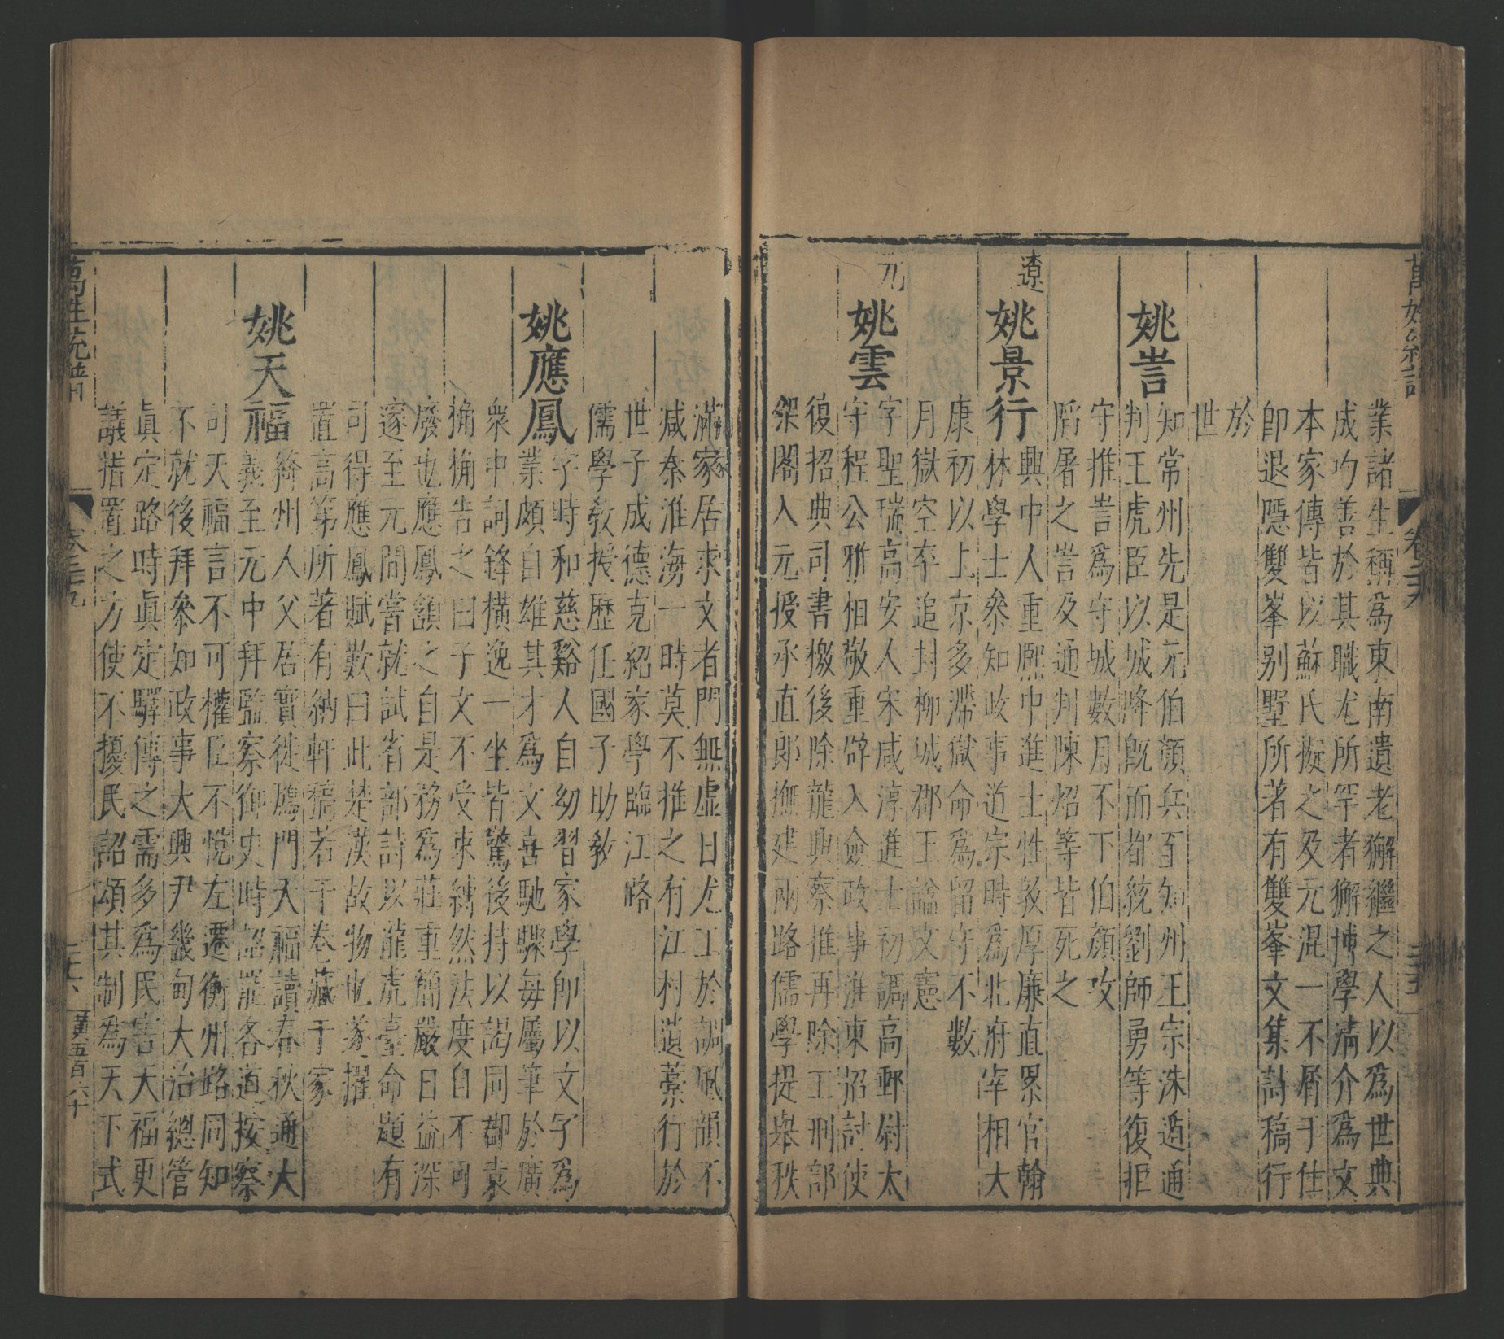 業諸生稱爲東南遺老獬繼之人以爲世典
成均善於其職尤所罕者獬博學淸介爲文
本家傳皆以蘇氏擬之及元混一不屑于仕
卽退隱雙峯别墅所著有雙峯文集詩稿行
於
世
姚訔
知常州先是元伯顏兵至知州王宗洙遁通
判王虎臣以城降旣而都統劉師勇等復拒
守推訔爲守城數月不下伯顏攻
䧟屠之訔及通判陳炤等皆死之
遼
姚景行
興中人重熈中進士性敦厚廉直累官翰
林學士叅知政事道宗時爲北府宰相大
康初以上京多滯獄命爲留守不數
月獄空卒追封柳城郡王諡文憲
元
姚雲
字聖瑞高安人宋咸淳進士初調高郵尉太
守程公雅相敬重辟入僉政事淮東招討使
復招典司書檄後除龍興察推再除工刑部
架閣入元授承直郎撫建兩路儒學提舉秩
滿家居求文者門無虛日尤工於調風韻不
咸秦淮海一時莫不推之有江村遺藁行於
世子成德克紹家學臨江路
儒學敎授歷任國子助敎
姚應鳳
字時和慈谿人自幼習家學卽以文字爲
業頗自雄其才爲文喜馳驟每屬筆於廣
衆中詞鋒橫逸一坐皆驚後持以謁同郡袁
桷桷告之曰子文不受束縛然法度自不可
廢也應鳳額之自是務爲莊重簡嚴日益深
遂至元間嘗就試省部詩以龍虎臺命題有
司得應鳳賦歎曰此楚漢故物也遂擢
置高第所著有納軒稿若干卷藏于家
姚天福
絳州人父居實徙鴈門天福讀春秋通大
義至元中拜監察御史時詔罷各道按察
司天福言不可權臣不悅左遷衡州路同知
不就後拜叅知政事大興尹畿甸大治總管
眞定路時眞定驛傳之需多爲民害天福更
議措置之方使不擾民詔頒其制爲天下式